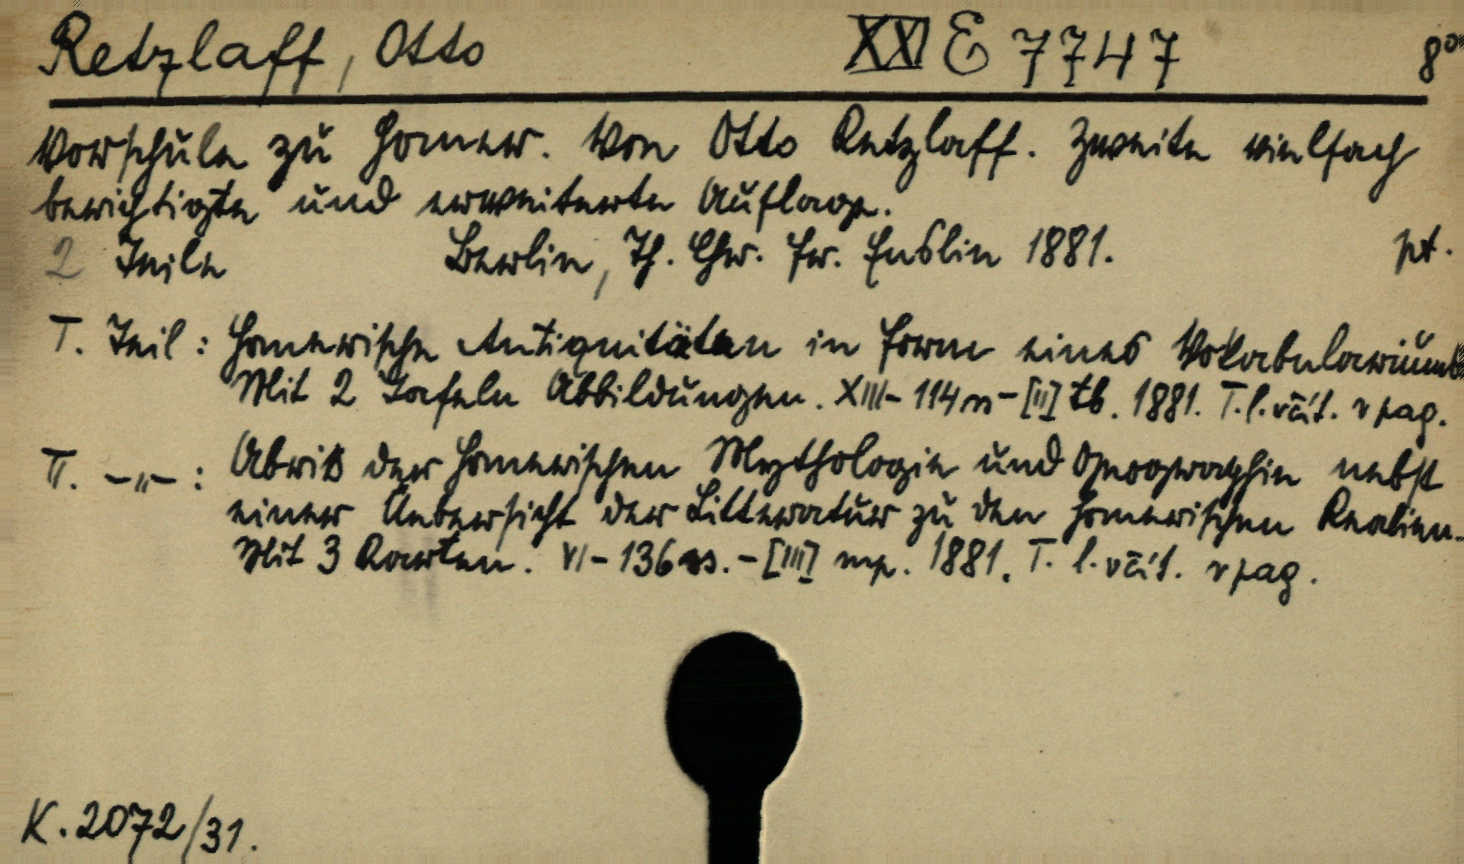 Retzlaff, Otto XXI E 7747 8°
Vorschule zu Homer. Von Otto Retzlaff. Zweite vielfach
berichtigte und erweiterte Auflage.
2 Teile Berlin, Th. Chr. Fr. Enslin 1881. pt.
I. Teil: Homerische Antiquitäten in Form eines Vokabulariums
Mit 2 Tafeln Abbildungen. XIII-114 - [II] tb. 1881. T. l. včít. v pag.
II. -„- : Abriß der Homerischen Mythologie und Geographie nebst
einer Uebersicht der Litteratur zu den Homerischen Realien.
Mit 3 Karten. VI-136 ss. - [III] mp. 1881. T. l. včít. v pag.
K. 2072/31.